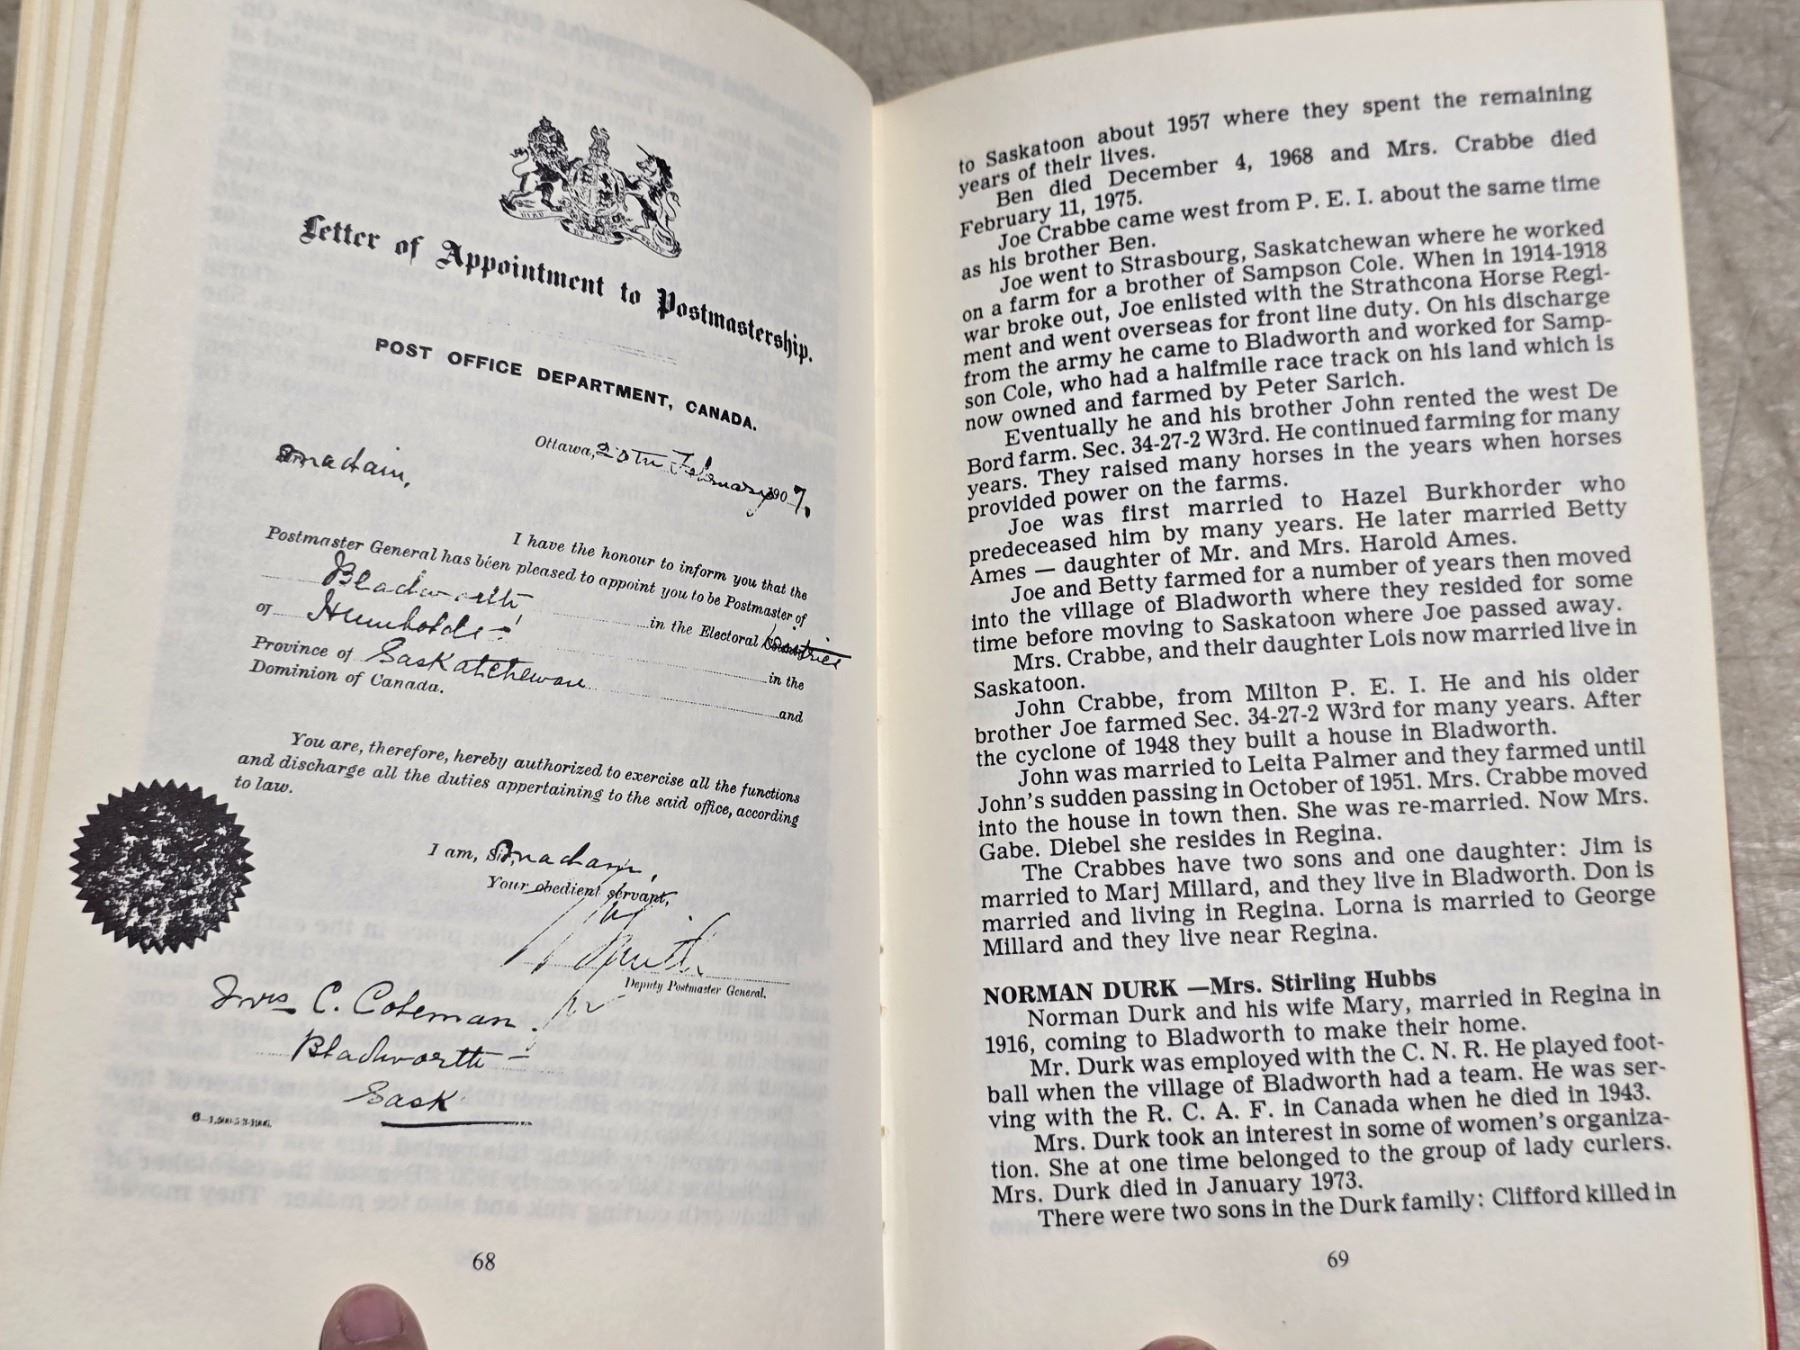 Letter of Appointment to Postmastership.
POST OFFICE DEPARTMENT, CANADA.
Ottawa, 20th February 1907.
Madam,
I have the honour to inform you that the
Postmaster General has been pleased to appoint you to be Postmaster of
Bladworth in the Electoral District
of Humboldt in the
Province of Saskatchewan and
Dominion of Canada.
You are, therefore, hereby authorized to exercise all the functions
and discharge all the duties appertaining to the said office, according
to law.
I am, Madam,
Your obedient servant,
Deputy Postmaster General.
Mrs C. Coleman
Bladworth
Sask
68
to Saskatoon about 1957 where they spent the remaining
years of their lives.
Ben died December 4, 1968 and Mrs. Crabbe died
February 11, 1975.
Joe Crabbe came west from P. E. I. about the same time
as his brother Ben.
Joe went to Strasbourg, Saskatchewan where he worked
on a farm for a brother of Sampson Cole. When in 1914-1918
war broke out, Joe enlisted with the Strathcona Horse Regi-
ment and went overseas for front line duty. On his discharge
from the army he came to Bladworth and worked for Samp-
son Cole, who had a halfmile race track on his land which is
now owned and farmed by Peter Sarich.
Eventually he and his brother John rented the west De
Bord farm. Sec. 34-27-2 W3rd. He continued farming for many
years. They raised many horses in the years when horses
provided power on the farms.
Joe was first married to Hazel Burkhorder who
predeceased him by many years. He later married Betty
Ames — daughter of Mr. and Mrs. Harold Ames.
Joe and Betty farmed for a number of years then moved
into the village of Bladworth where they resided for some
time before moving to Saskatoon where Joe passed away.
Mrs. Crabbe, and their daughter Lois now married live in
Saskatoon.
John Crabbe, from Milton P. E. I. He and his older
brother Joe farmed Sec. 34-27-2 W3rd for many years. After
the cyclone of 1948 they built a house in Bladworth.
John was married to Leita Palmer and they farmed until
John's sudden passing in October of 1951. Mrs. Crabbe moved
into the house in town then. She was re-married. Now Mrs.
Gabe. Diebel she resides in Regina.
The Crabbes have two sons and one daughter: Jim is
married to Marj Millard, and they live in Bladworth. Don is
married and living in Regina. Lorna is married to George
Millard and they live near Regina.
NORMAN DURK —Mrs. Stirling Hubbs
Norman Durk and his wife Mary, married in Regina in
1916, coming to Bladworth to make their home.
Mr. Durk was employed with the C. N. R. He played foot-
ball when the village of Bladworth had a team. He was ser-
ving with the R. C. A. F. in Canada when he died in 1943.
Mrs. Durk took an interest in some of women's organiza-
tion. She at one time belonged to the group of lady curlers.
Mrs. Durk died in January 1973.
There were two sons in the Durk family: Clifford killed in
69